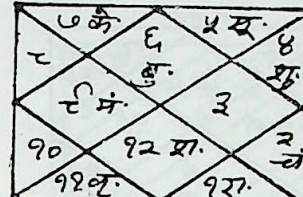 ७ के
६
बु.
५ सू.
४
शु.
८
९ मं.
३
१०
१२ श.
२
चं
११ वृ.
१ रा.